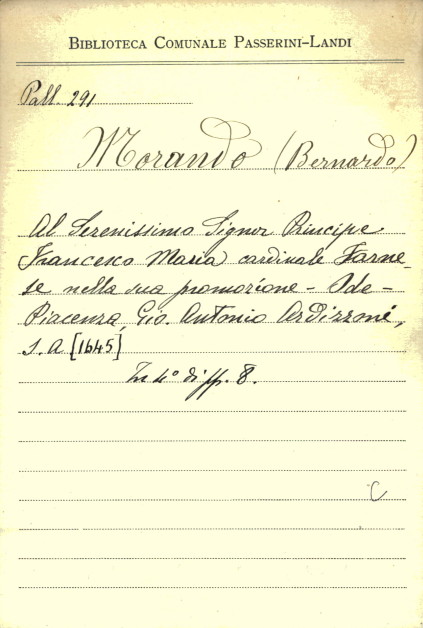 BIBLIOTECA COMUNALE PASSERINI-LANDI
Pall. 291
Morando (Bernardo)
Al Serenissimo Signor Principe
Francesco Maria cardinale Farne-
se nella sua promozione - Ode -
Piacenza, Gio. Antonio Ardizzoni,
s. a [1645]
In 4° di pp. 8.
C